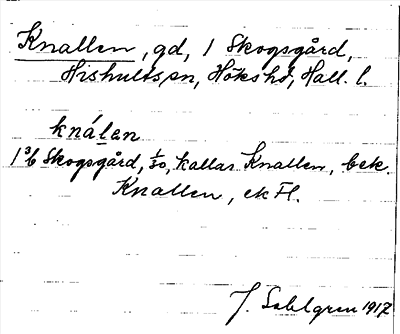 Knallen, gd, 1 Skogsgård,
Hishults sn, Höks hd, Hall. l.
knálen
1 3/6 Skogsgård, 1/30, kallas Knallen, bek.
Knallen, ek Fl.
J. Sahlgren 1917